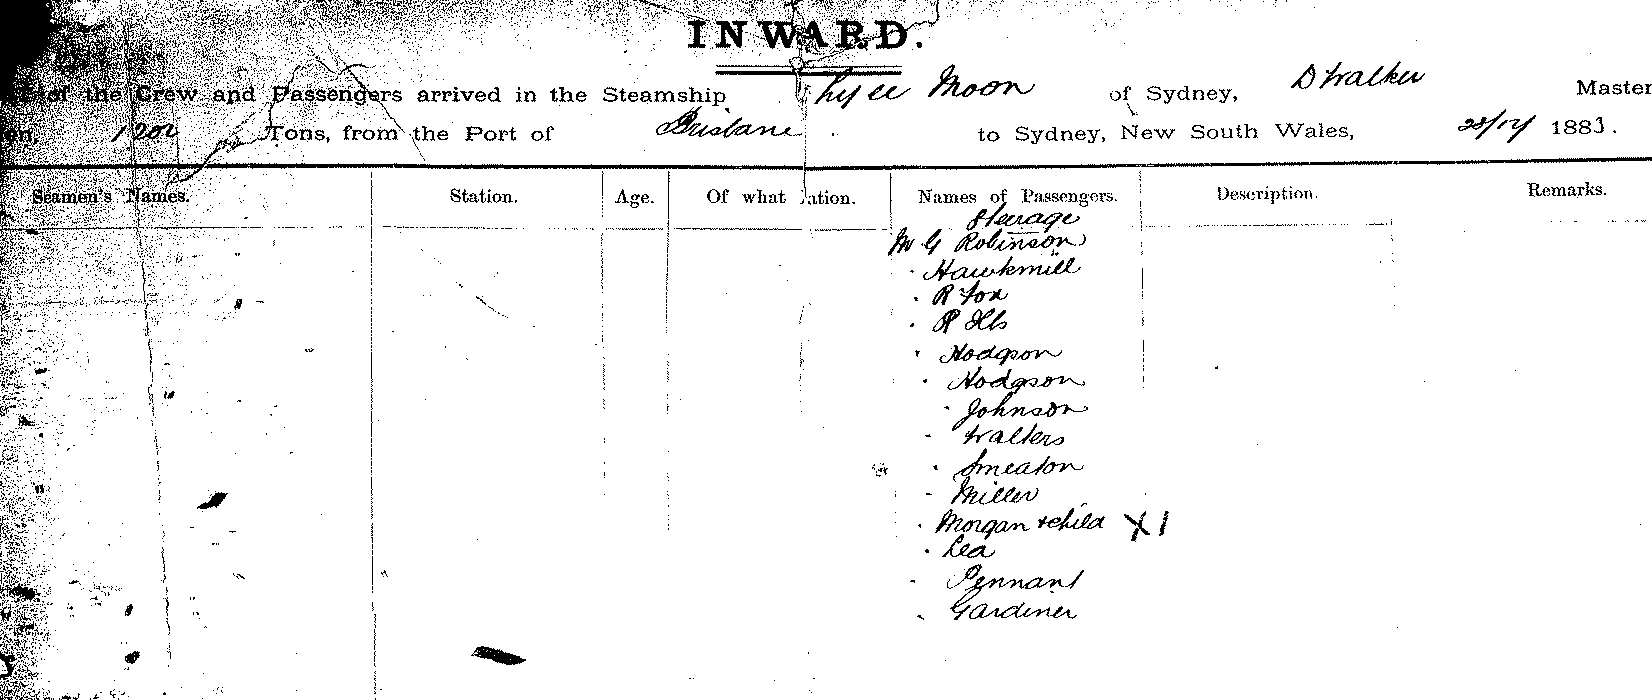 INWARD.
of the Crew and Passengers arrived in the Steamship Lyee Moon of Sydney, D Walker Master
1202 Tons, from the Port of Brisbane to Sydney, New South Wales, 28/12/ 1883.
Seamen's Names. Station. Age. Of what Nation. Names of Passengers. Description. Remarks.
Steerage
Mr G Robinson
" Hawkmill
" R Fox
" R
" Hodgson
" Hodgson
" Johnson
" Walters
" Smeaton
" Miller
" Morgan + child X 1
" Lea
" Pennant
" Gardiner